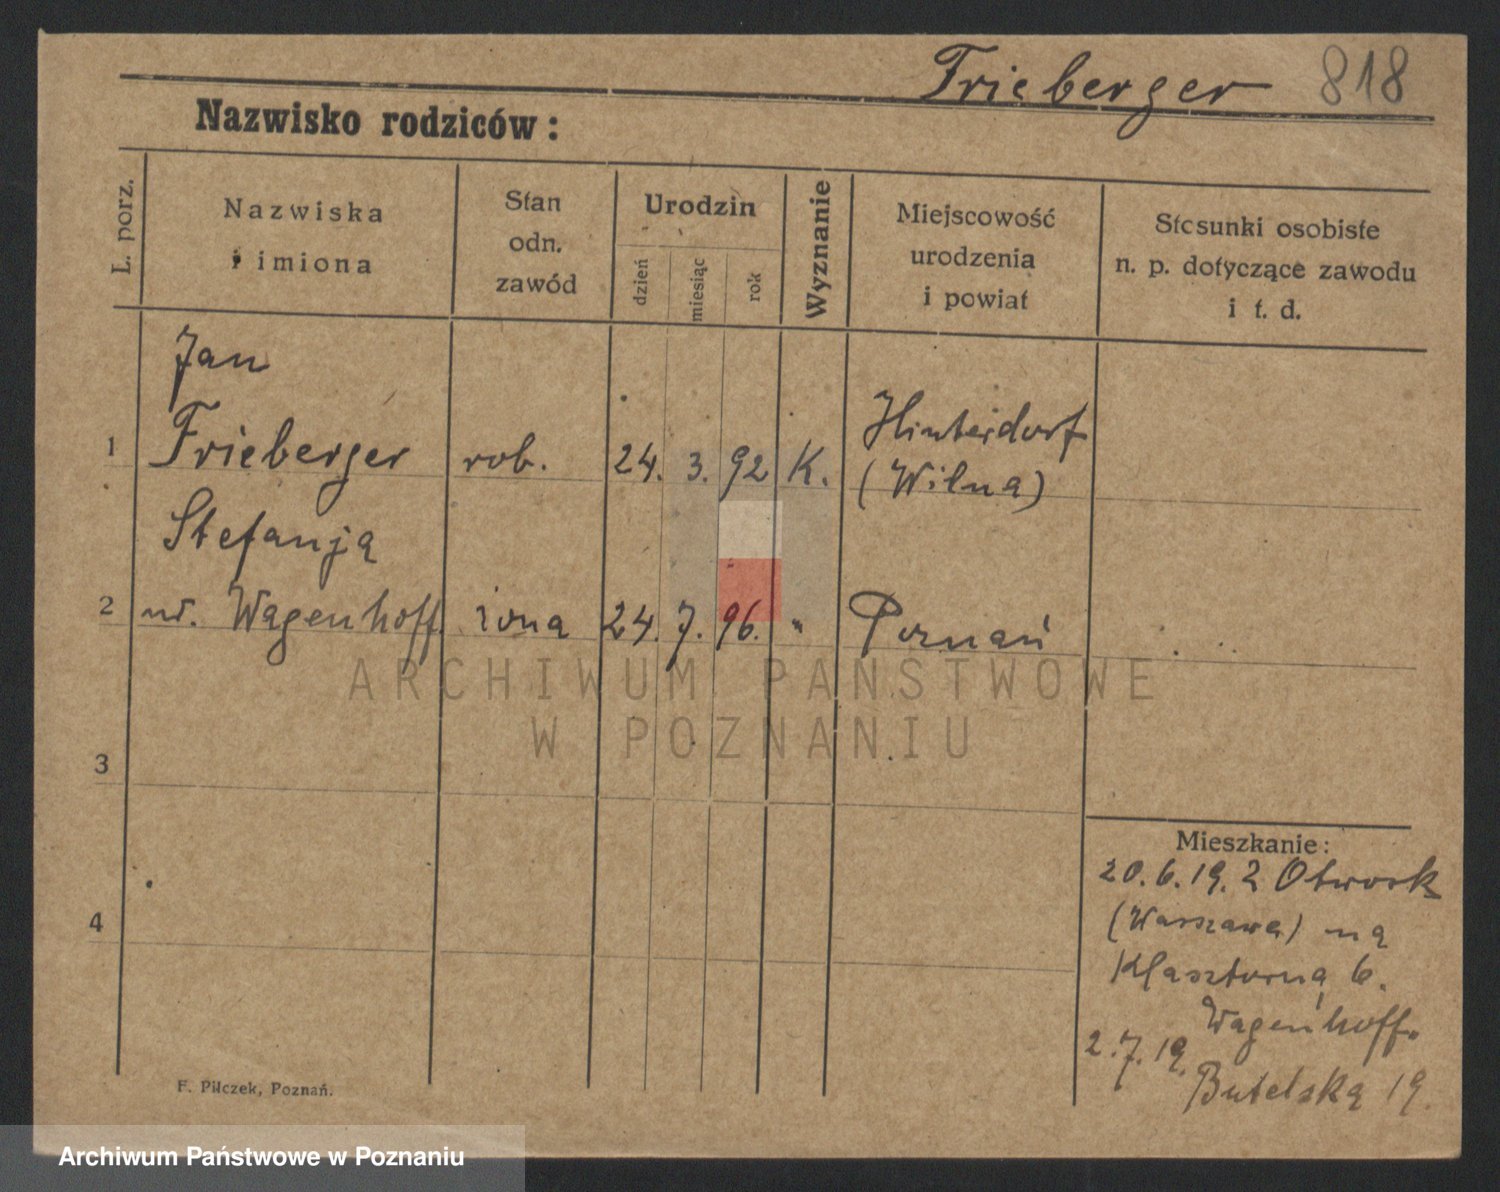 Frieberger 818
Nazwisko rodziców :
L. porz.
Nazwiska
i imiona
Stan
odn.
zawód
Urodzin
dzień
miesiąc
rok
Wyznanie
Miejscowość
urodzenia
i powiat
Stosunki osobiste
n. p. dotyczące zawodu
i t. d.
Jan
1 Frieberger rob. 24. 3. 92 K. Hinterdorf
(Wilna)
Stefanja
2 ur. Wagenhoff żona 24. 7. 96. " Poznań
ARCHIWUM PAŃSTWOWE
W POZNANIU
3
4
Mieszkanie:
20. 6. 19. z Otwock
(Warszawa) na
Klasztorną 6.
Wagenhoff.
2. 7. 19.
Butelską 19.
F. Pilczek, Poznań.
Archiwum Państwowe w Poznaniu